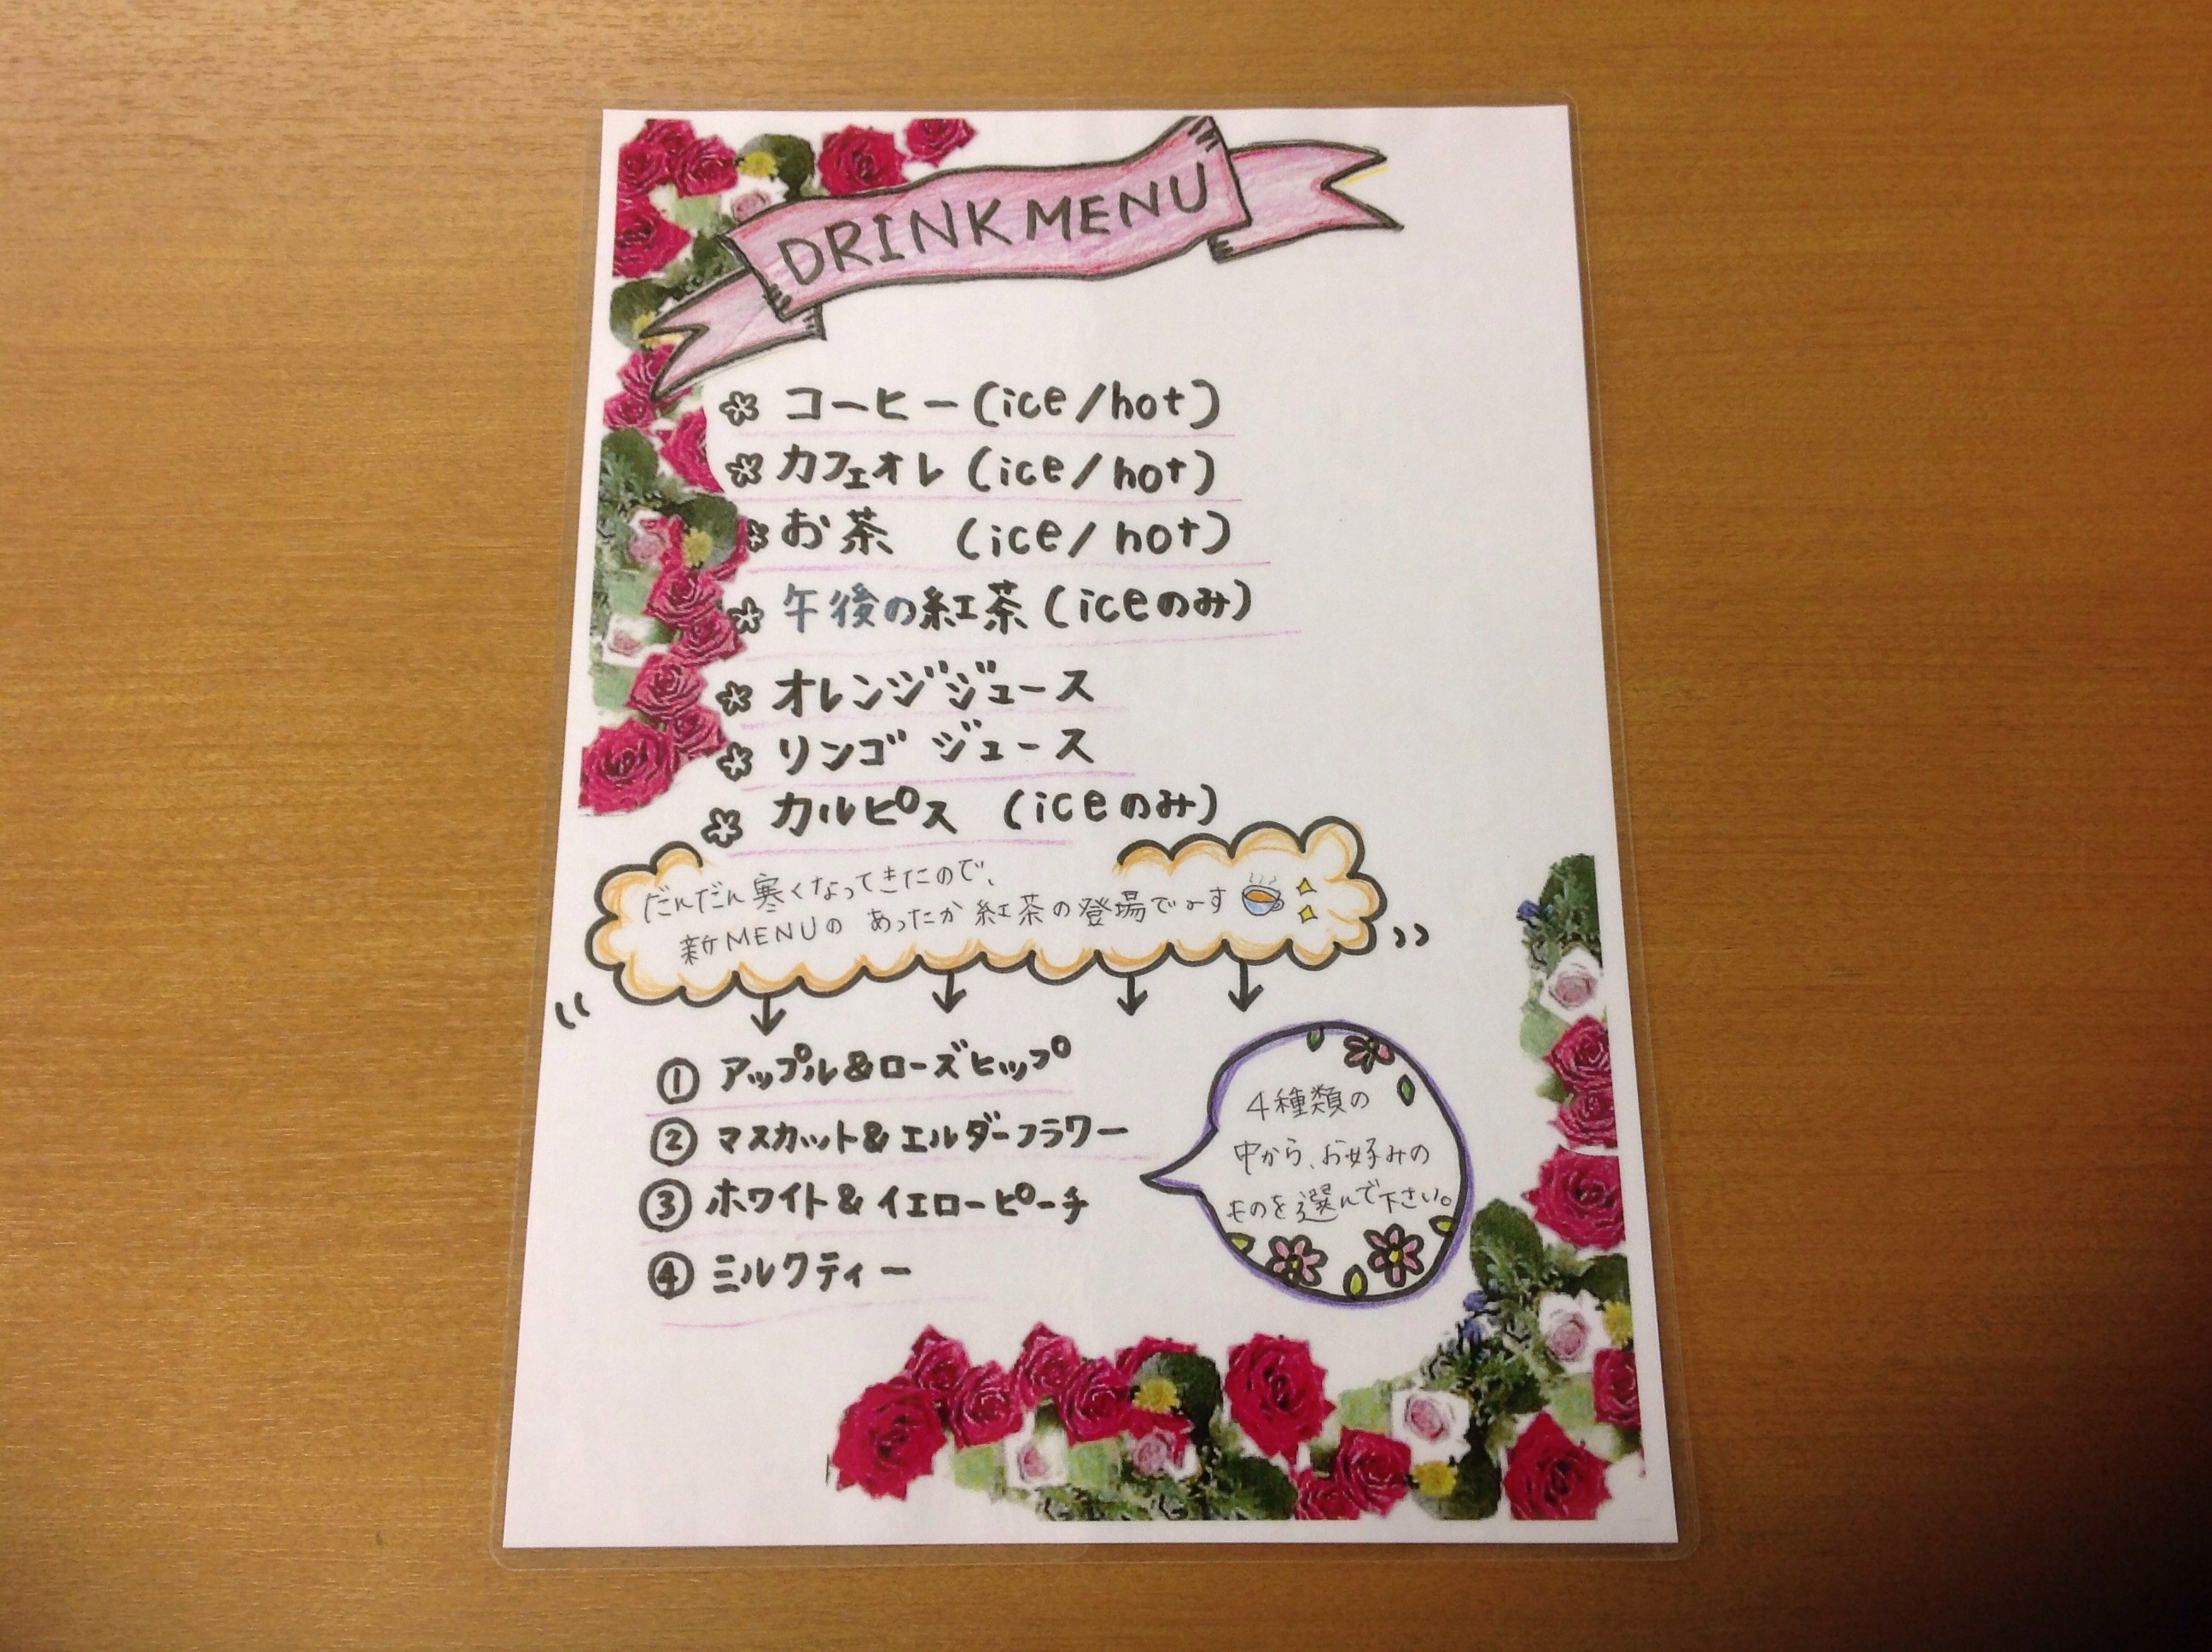 DRINK MENU
コーヒー(ice/hot)
カフェオレ(ice/hot)
お茶 (ice/hot)
午後の紅茶(iceのみ)
オレンジジュース
リンゴジュース
カルピス (iceのみ)
だんだん寒くなってきたので、
新MENUの あったか紅茶の登場でーす
① アップル&ローズヒップ
② マスカット&エルダーフラワー
③ ホワイト&イエローピーチ
④ ミルクティー
4種類の
中から、お好みの
ものを選んで下さい。